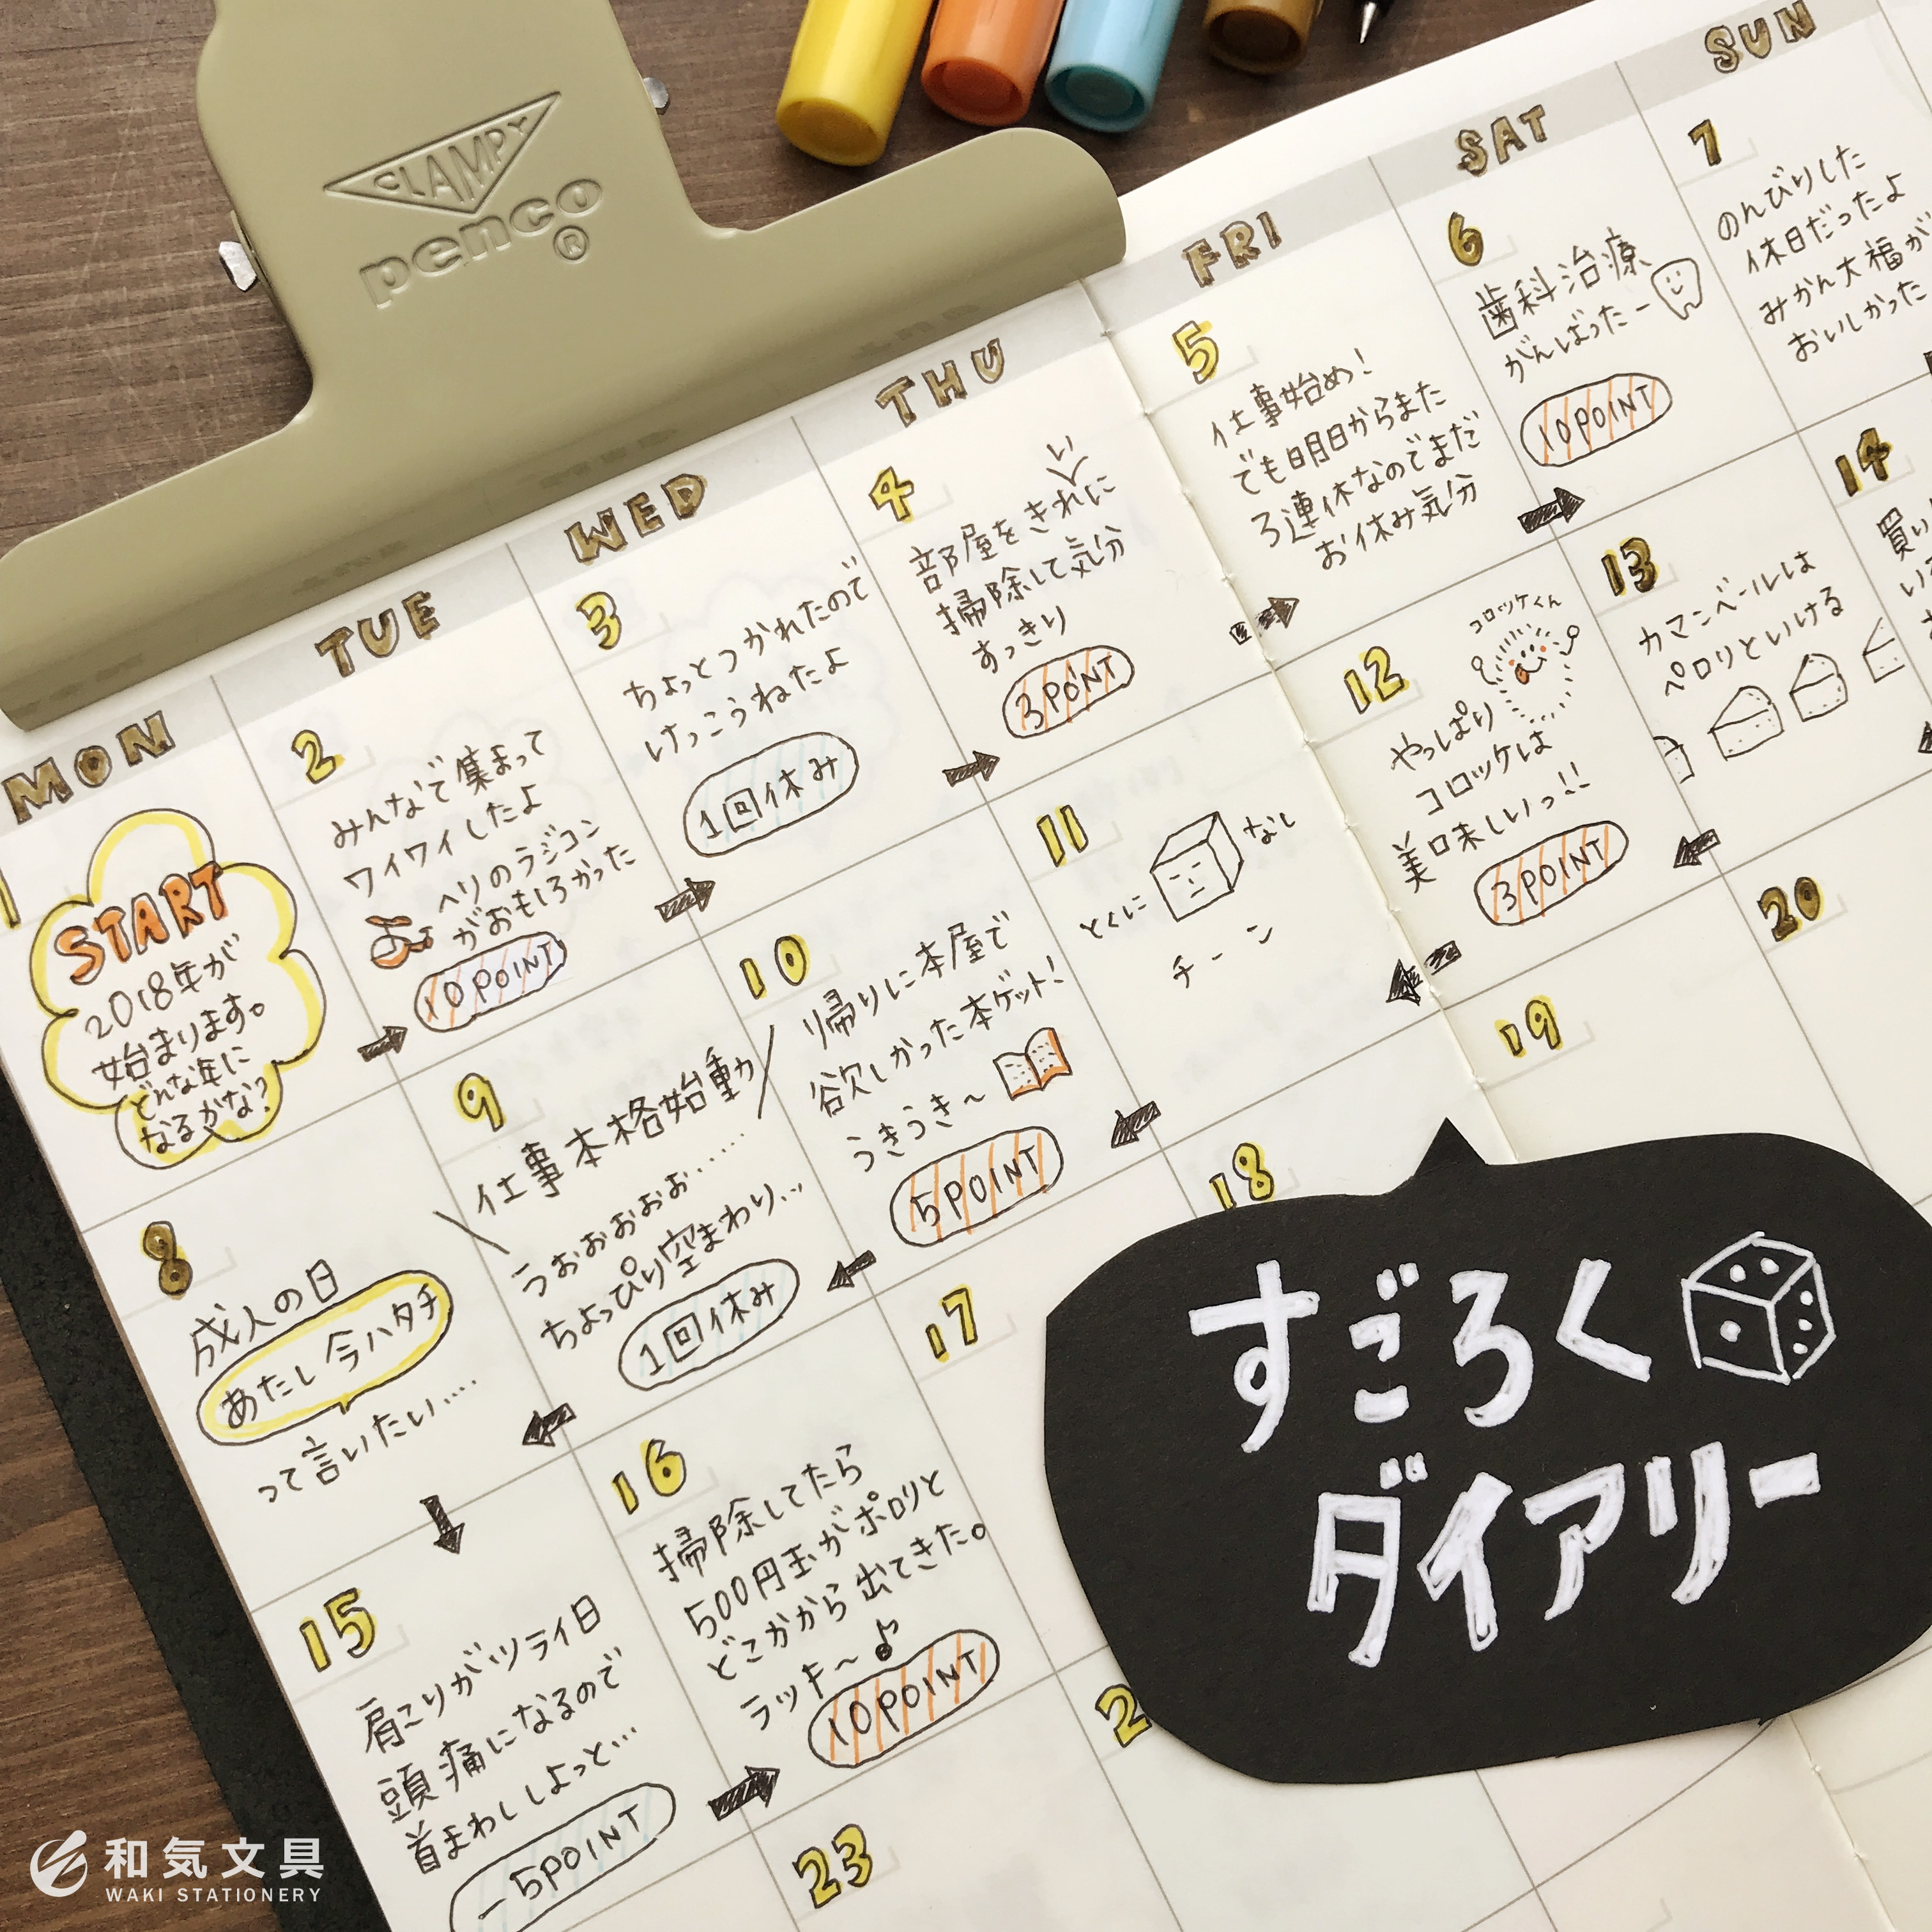 CLAMPY
penco
®
MON
TUE
WED
THU
FRI
SAT
SUN
1
START
2018年が
始まります。
どんな年に
なるかな?
2
みんなで集まって
ワイワイしたよ
ヘリのラジコン
がおもしろかった
10POINT
3
ちょっとつかれたので
けっこうねたよ
1回休み
4
い
部屋をきれに
掃除して気分
すっきり
3POINT
5
仕事始め!
でも明日からまた
3連休なのでまだ
お休み気分
6
歯科治療
がんばったー
10POINT
7
のんびりした
休日だったよ
みかん大福が
おいしかった
8
成人の日
あたし今ハタチ
って言いたい....
9
仕事本格始動
うおおおおお......
ちょっぴり空まわり...
1回休み
10
帰りに本屋で
欲しかった本ゲット!
うきうき~
5POINT
11
とくに
なし
チーン
12
コロッケくん
やっぱり
コロッケは
美味しいっ!!
3POINT
13
カマンベールは
ペロリといける
14
買い
15
肩こりがツライ日
頭痛になるので
首まわししよっと...
-5POINT
16
掃除してたら
500円玉がポロリと
どこかから出てきた。
ラッキ~♪
10POINT
17
18
19
20
2
23
すごろく
ダイアリー
和気文具
WAKI STATIONERY